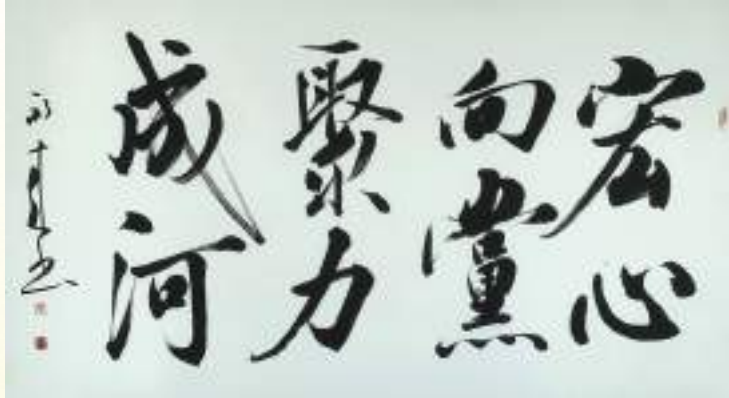 宏心
向黨
聚力
成河